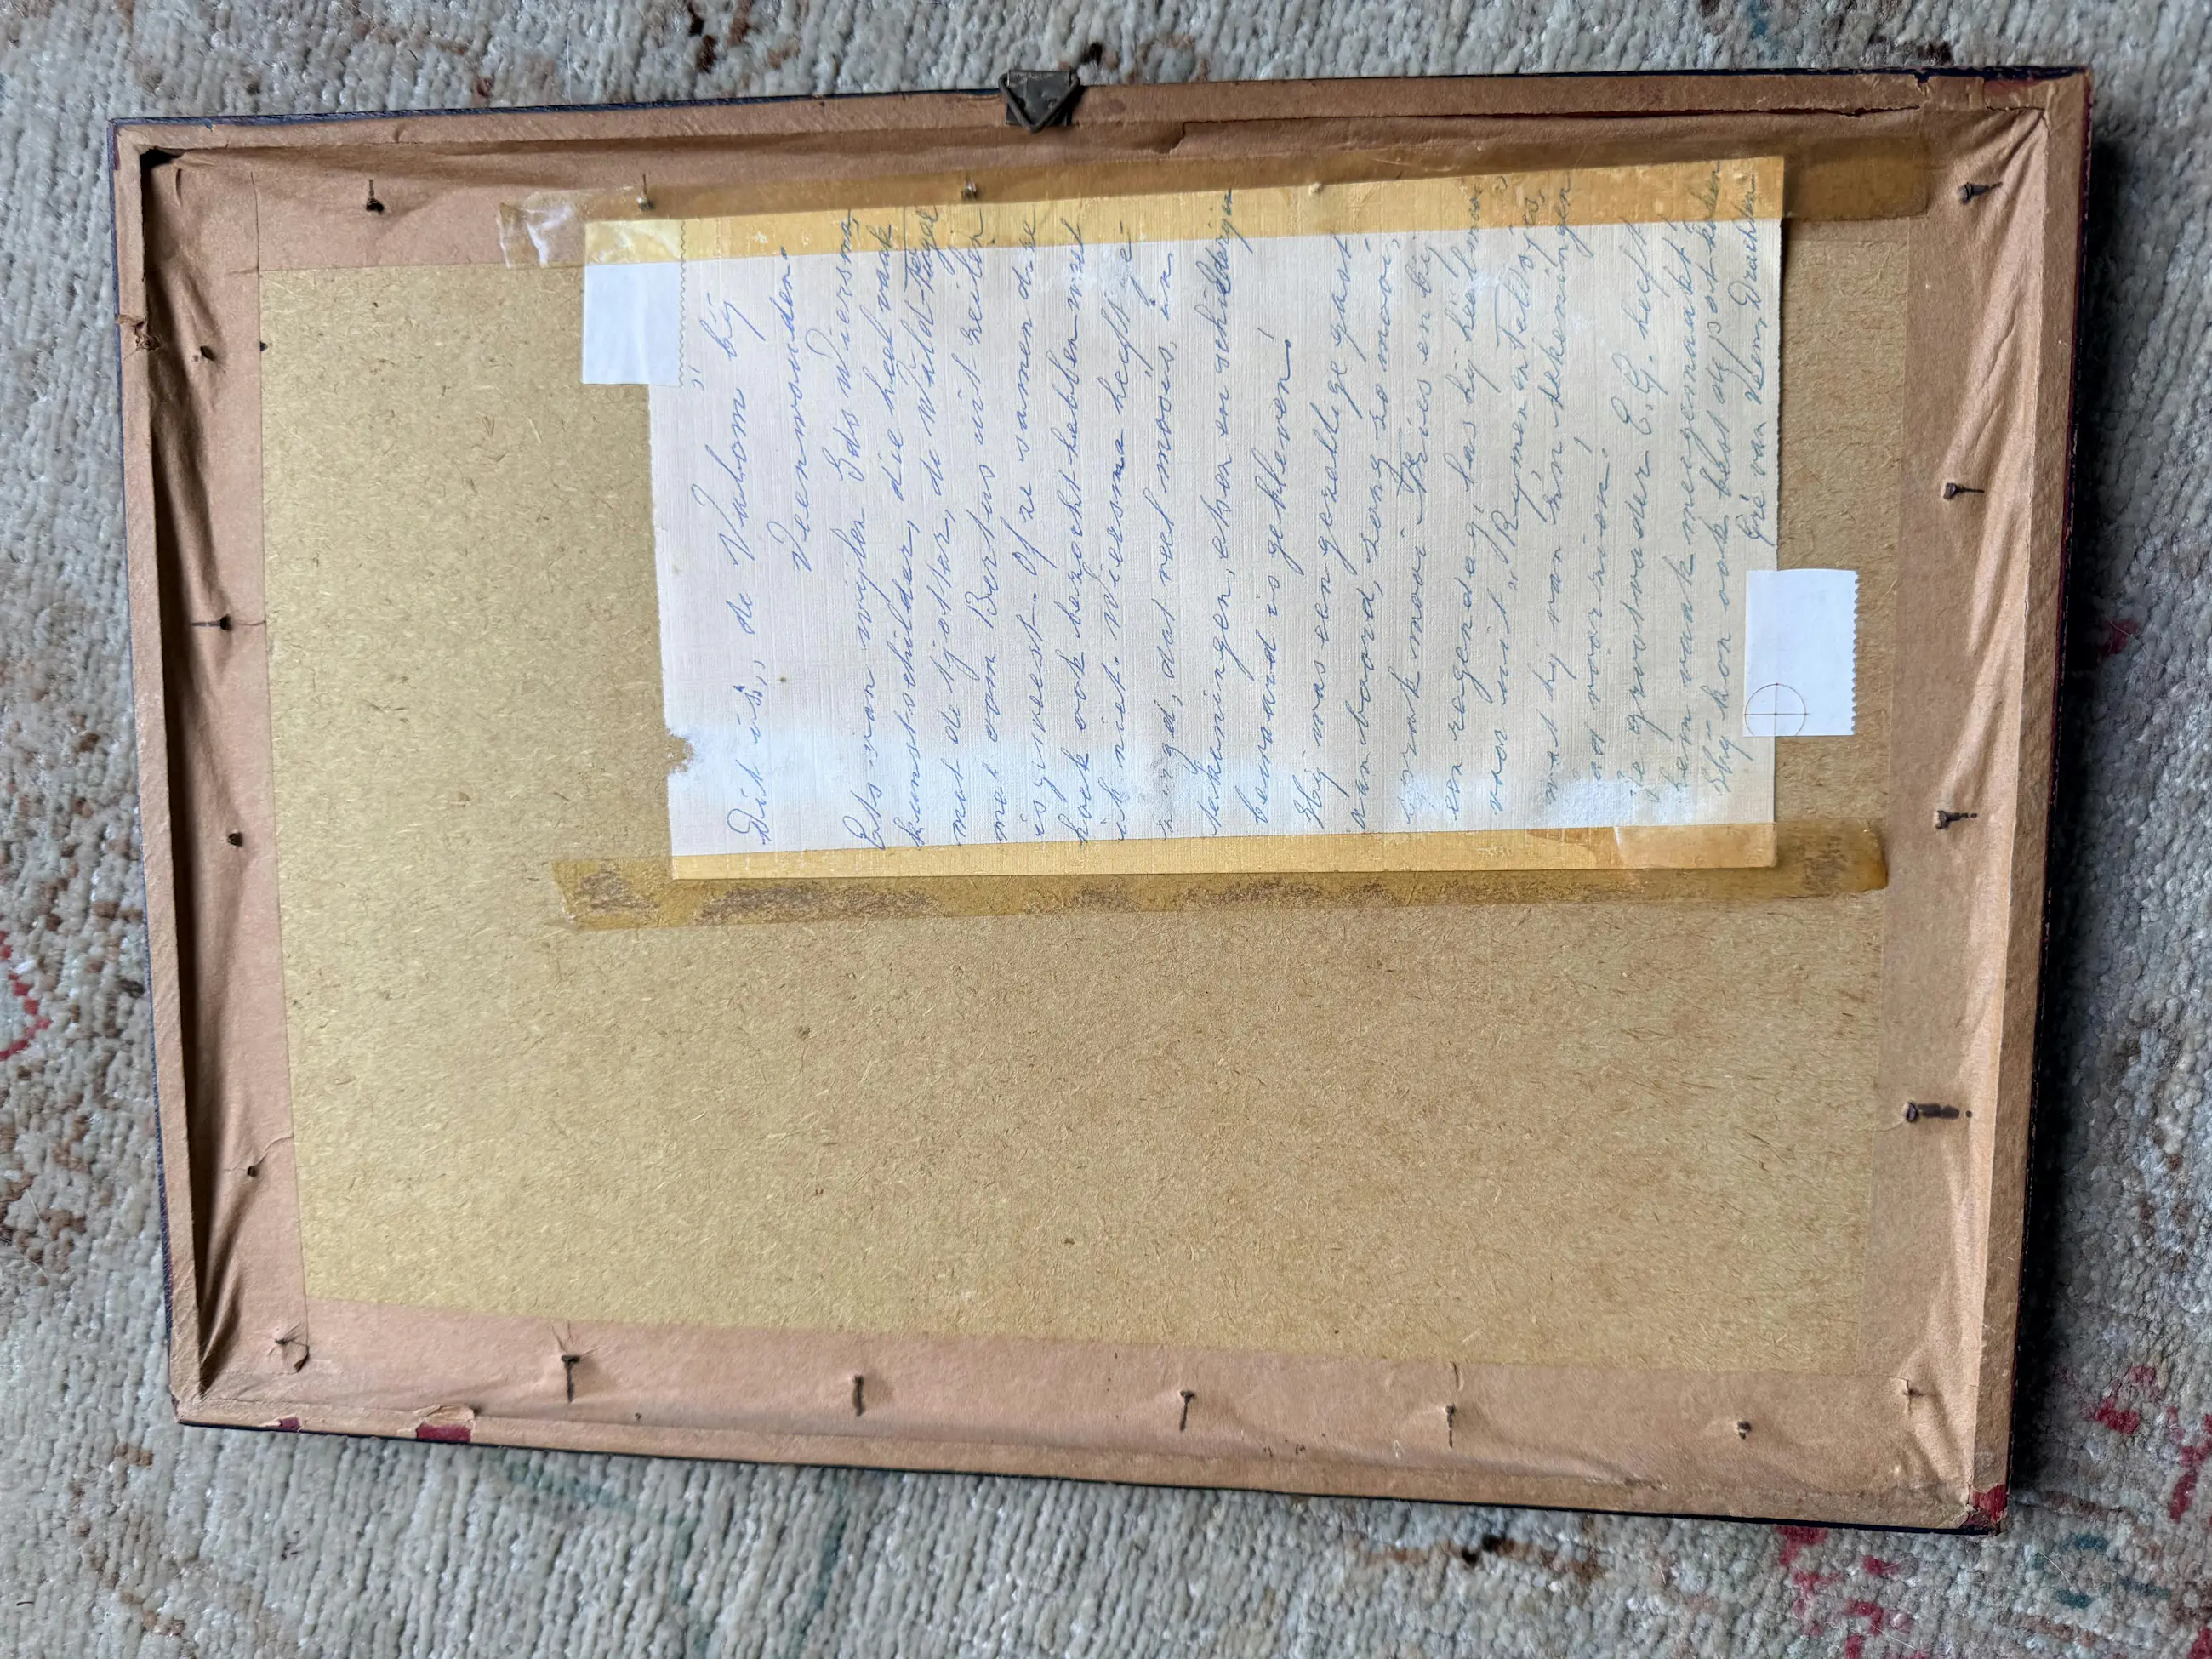 Dit is, de Valom" bij
Veenwouden.
Ets van wijlen Ids Wiersma,
kunstschilder, die heel vaak
met de tjotter, de Wâld-Fûgel
met oom Bertus uit zeilen
is geweest. Of ze samen deze
hoek ook bezocht hebben weet
ik niet. Wiersma heeft ge-
zorgd, dat veel moois, in
tekeningen, etsen en schilderijen
bewaard is gebleven!
Hij was een gezellige gast
aan boord, zong zo mooi,
sprak mooi Fries en bij
een regendag, las hij helemaal
voor uit „Rymen en Teltsjes,
wat hij van z'n tekeningen
had voorzien!
Je grootvader E.G. heeft
hem vaak meegemaakt!
Hij kon ook best dij potskoken
Gré van Veen, Drachten